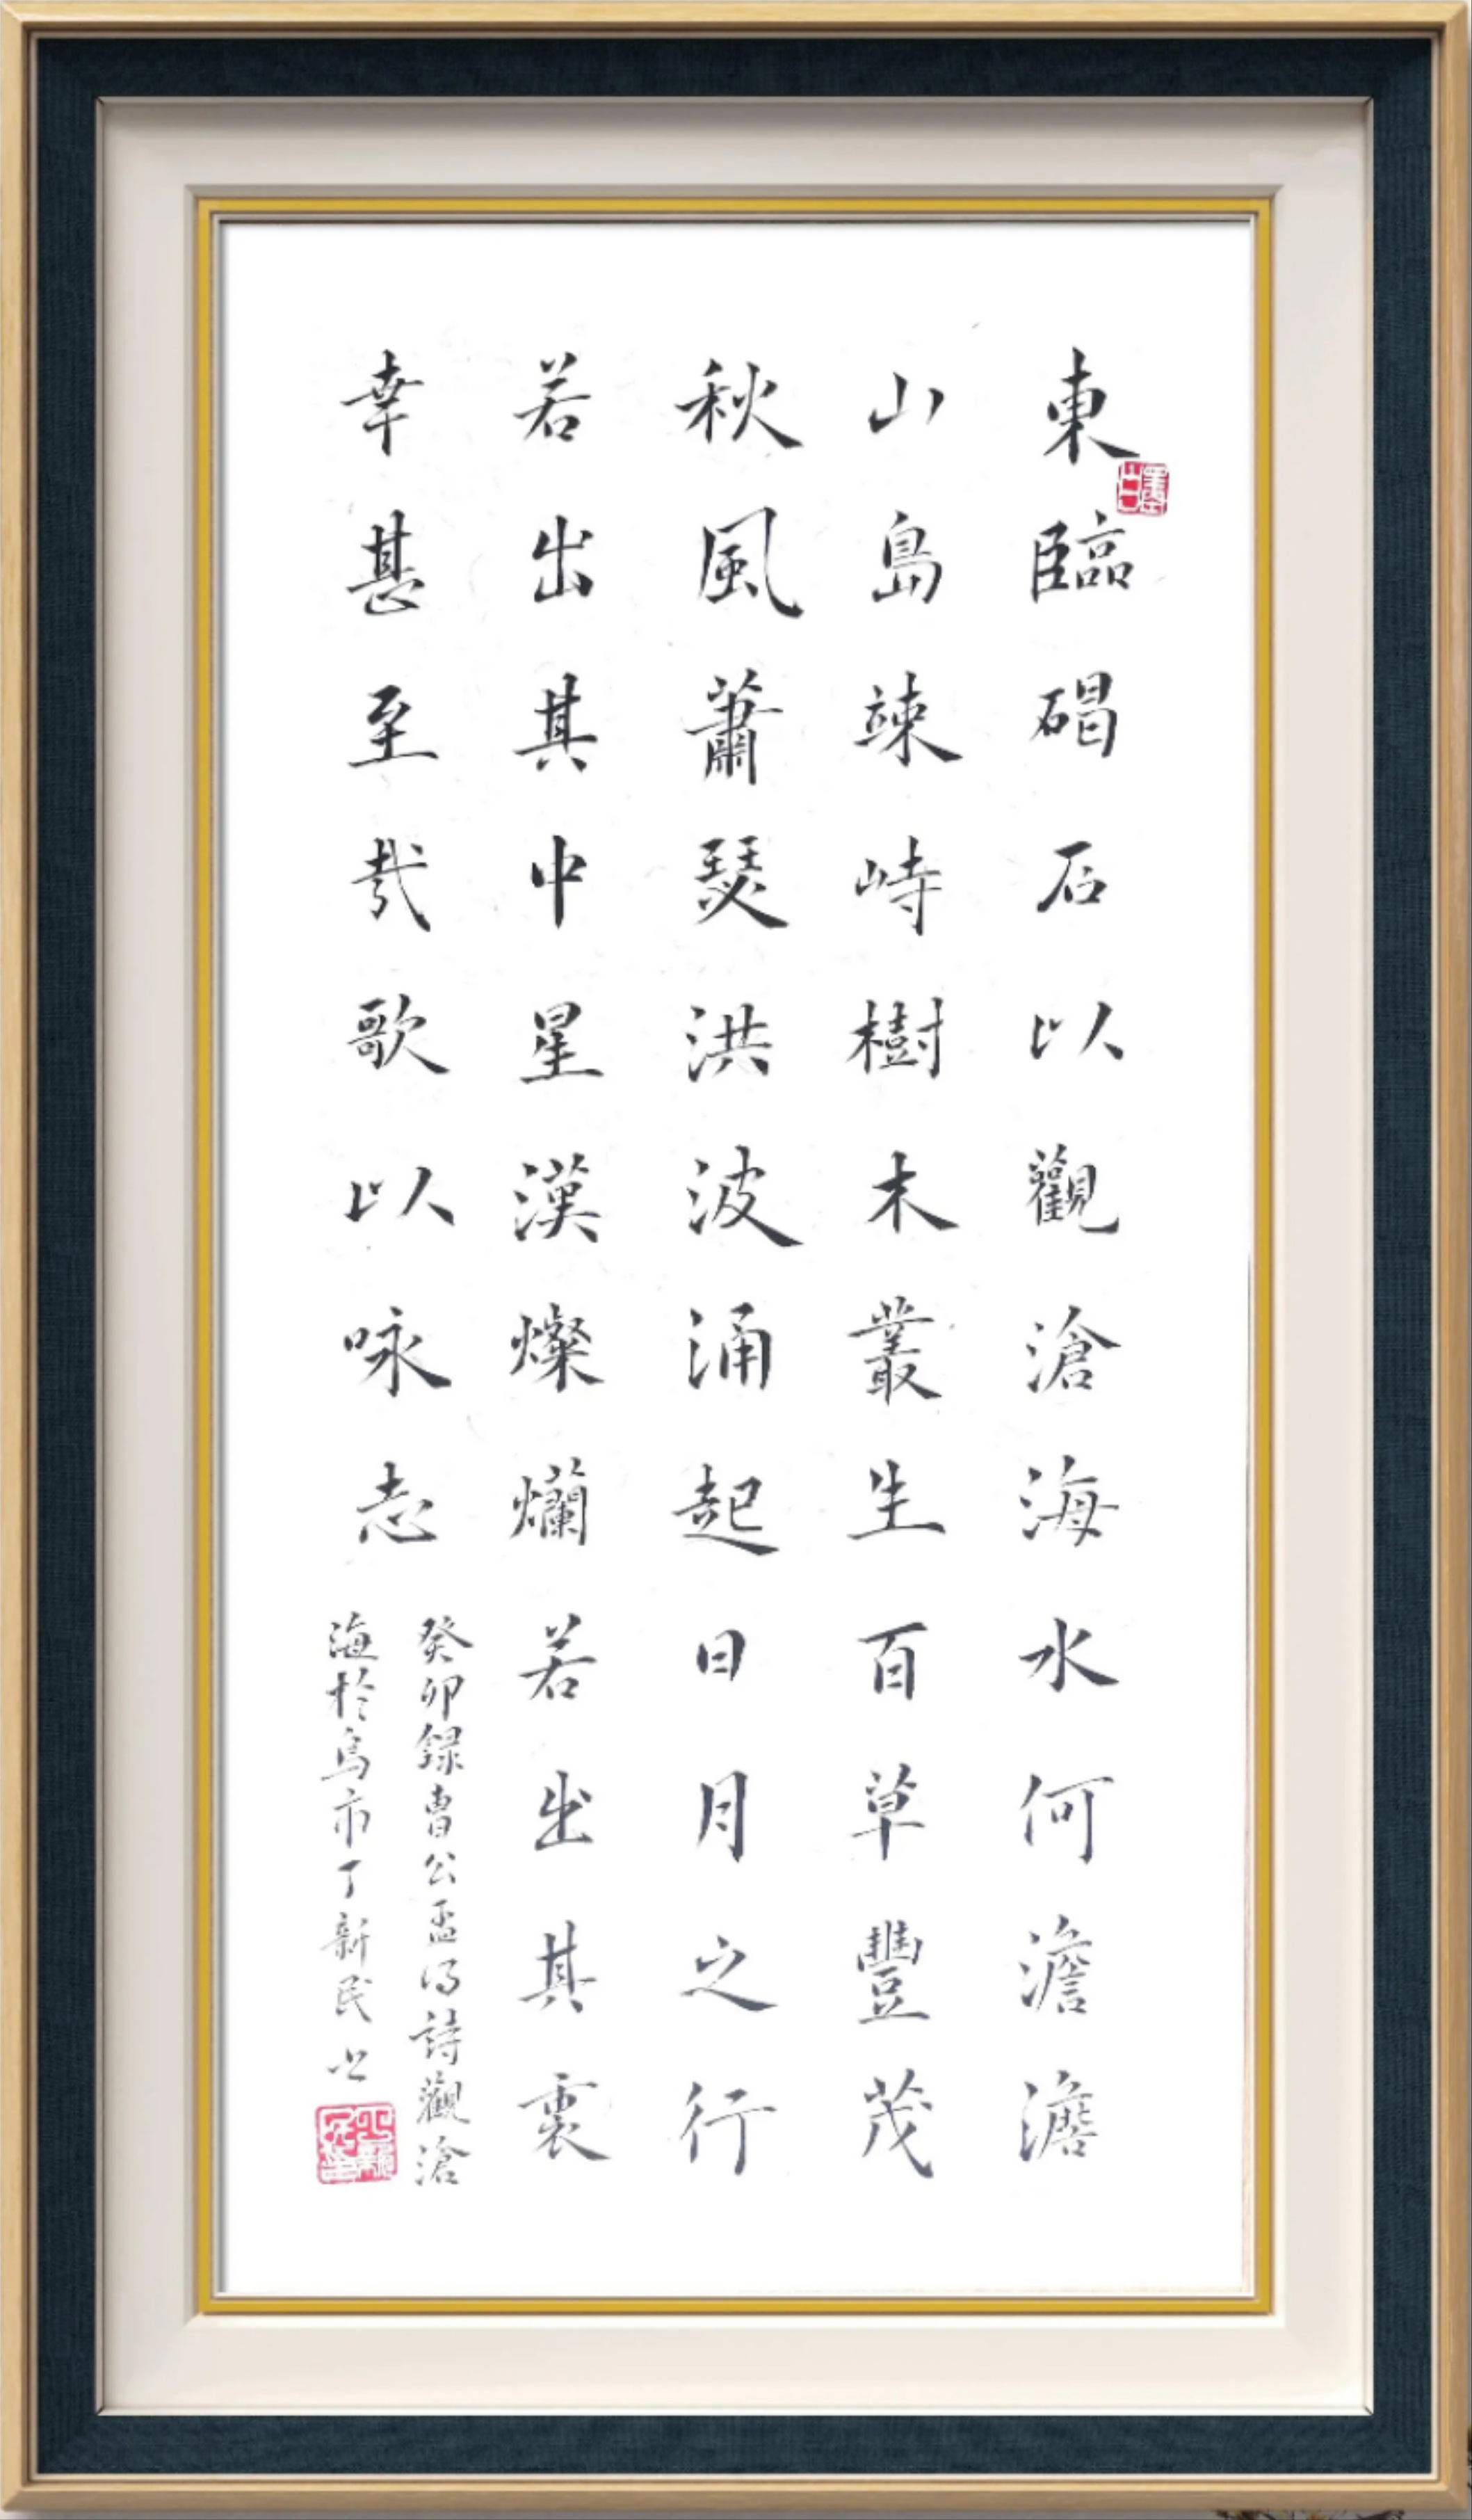 東臨碣石以觀滄海水何澹澹
山島竦峙樹木叢生百草豐茂
秋風蕭瑟洪波涌起日月之行
若出其中星漢燦爛若出其裏
幸甚至哉歌以咏志
癸卯録曹公孟得詩觀滄
海於烏市丁新民书